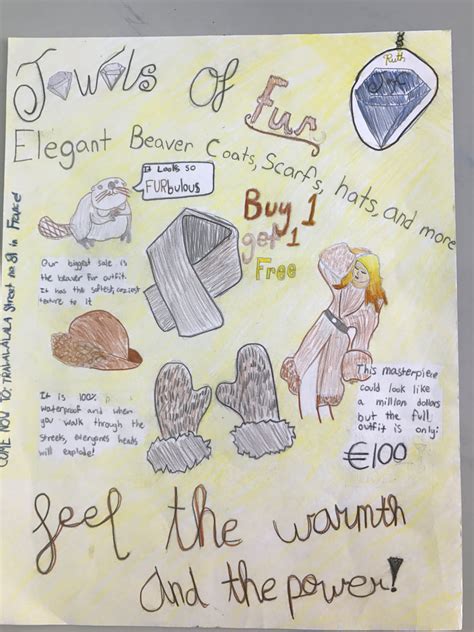 Jewels Of
Fur
Ruth
Elegant Beaver Coats, Scarfs, hats, and more
It Looks so
FURbulous
Buy 1
get 1
Free
Our biggest sale is
the beaver fur outfit.
It has the softest, coziest
texture to it
It is 100%
waterproof and when
you walk through the
streets, everyones heads
will explode!
This masterpiece
could look like
a million dollars
but the full
outfit is only:
€100
COME NOW TO: TRALALALALA Street no 89 in France!
feel the warmth
and the power!